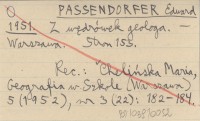 PASSENDORFER Edward
1951. Z wędrówek geologa.
Warszawa. Stron 153.
Rec.: Chelińska Maria,
Geografia w Szkole (Warszawa)
5 (1952), nr 3 (22): 182-184.